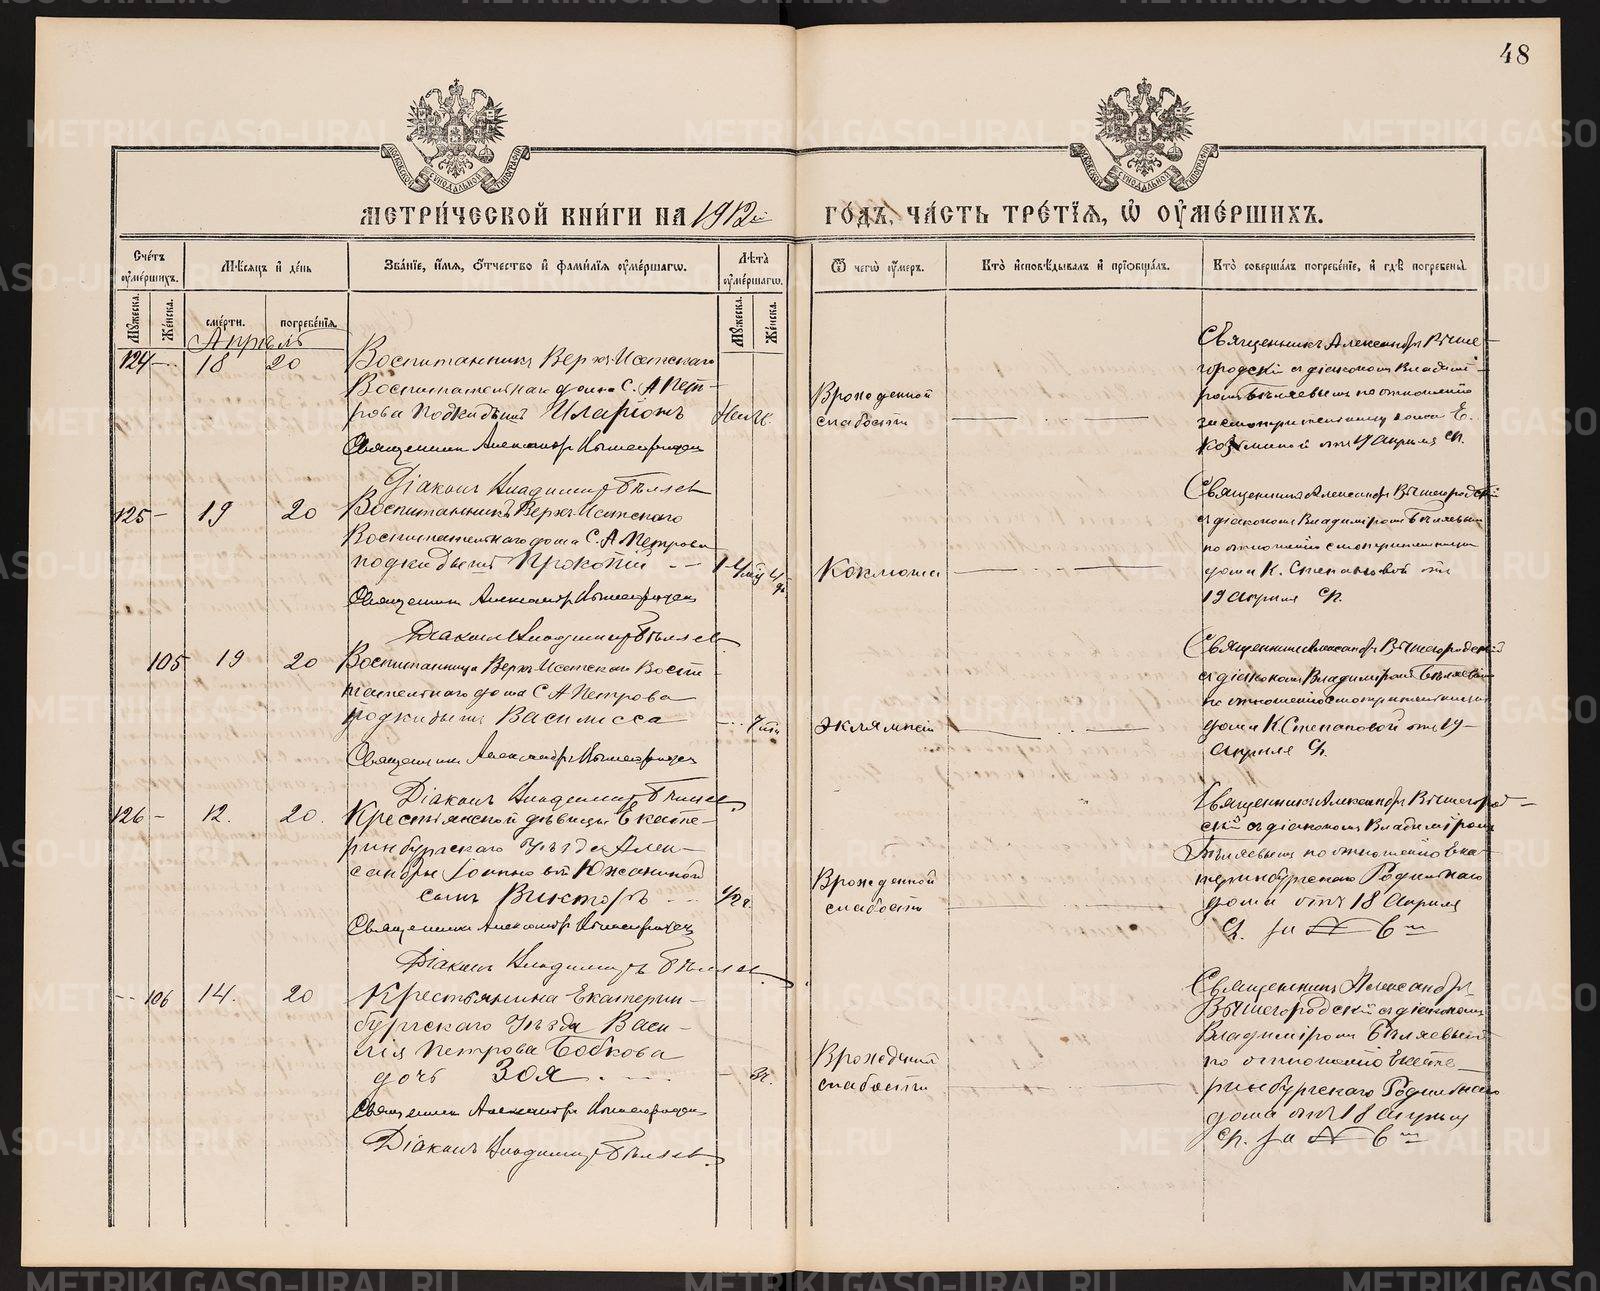 48
МЕТРИ́ЧЕСКОЙ КНИ́ГИ НА 1912й ГО́ДЪ, ЧА́СТЬ ТРЕ́ТЇѦ, Ѡ҆ ОУ҆МЕ́РШИХЪ.
Сче́тъ оумершихъ.
Мѣ́сѧцъ и҆ де́нь
Зва́нїе, и҆́мѧ, ѻ҆́тчество и҆ фами́лїѧ оуме́ршагѡ.
Лѣ́та оуме́ршагѡ.
Ѿ чегѡ̀ оу҆́меръ.
Кто̀ и҆сповѣ́дывалъ и҆ прїѡбща́лъ.
Кто̀ соверша́лъ погребе́нїе, и҆ гдѣ̀ погребены̀.
Мꙋжеска.
Же́нска.
сме́рти.
погребе́нїѧ.
Мꙋжеска.
Же́нска.
Апрѣль
124 - 18 20
Воспитанникъ Верхъ-Исетскаго
Воспитательнаго дома С. А Пет-
рова подкидышъ Иларіонъ
Священникъ Александръ Вышегородскій
Діаконъ Владимиръ Бѣляевъ
Врожденной
слабости
Священникъ Александръ Выше-
городскій съ діакономъ Владимі-
ромъ Бѣляевымъ по отношенію
смотрительницы дома Е.
отъ 19 Апрѣля
125 - 19 20
Воспитанникъ Верхъ-Исетскаго
Воспитательнаго дома С. А Петрова
подкидышъ Прокопій
Священникъ Александръ Вышегородскій
Діаконъ Владимиръ Бѣляевъ
Коклюша
Священникъ Александръ Вышегородскій
съ діакономъ Владиміромъ Бѣляевымъ
по отношенію смотрительницы
дома К. Степановой отъ
19 Апрѣля
105 19 20
Воспитанница Верхъ-Исетскаго Воспи-
тательнаго дома С А Петрова
подкидышъ Василисса
Священникъ Александръ Вышегородскій
Діаконъ Владимиръ Бѣляевъ
Эклямпсіи
Священникъ Александръ Вышегородскій
съ діакономъ Владиміромъ Бѣляевымъ
по отношенію смотрительницы
дома К. Степановой отъ 19-
Апрѣля
126 - 12. 20.
Крестьянской дѣвицы Екате-
ринбургскаго Уѣзда Алек-
сандры Іоанновой Южаниной
сынъ Викторъ 1/2 ч.
Священникъ Александръ Вышегородскій
Діаконъ Владимиръ Бѣляевъ
Врожденной
слабости
Священникъ Александръ Вышегород-
скій съ діакономъ Владиміромъ
Бѣляевымъ по отношенію Ека-
теринбургскаго Родильнаго
дома отъ 18 Апрѣля
за № 6м
-- 106 14. 20
Крестьянина Екатерин-
бургскаго Уѣзда Васи-
лія Петрова Бобкова
дочь Зоя
Священникъ Александръ Вышегородскій
Діаконъ Владимиръ Бѣляевъ
Врожденной
слабости
Священникъ Александръ
Вышегородскій съ діакономъ
Владиміромъ Бѣляевымъ
по отношенію Екате-
ринбургскаго Родильнаго
дома отъ 18 Апрѣля
за № 6м
METRIKI.GASO-URAL.RU